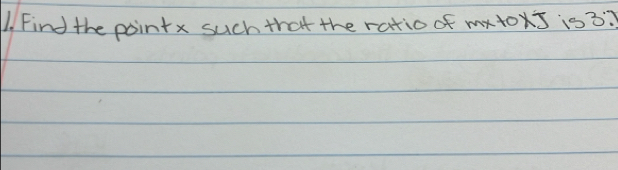 1. Find the point x such that the ratio of mx to XJ is 3:1